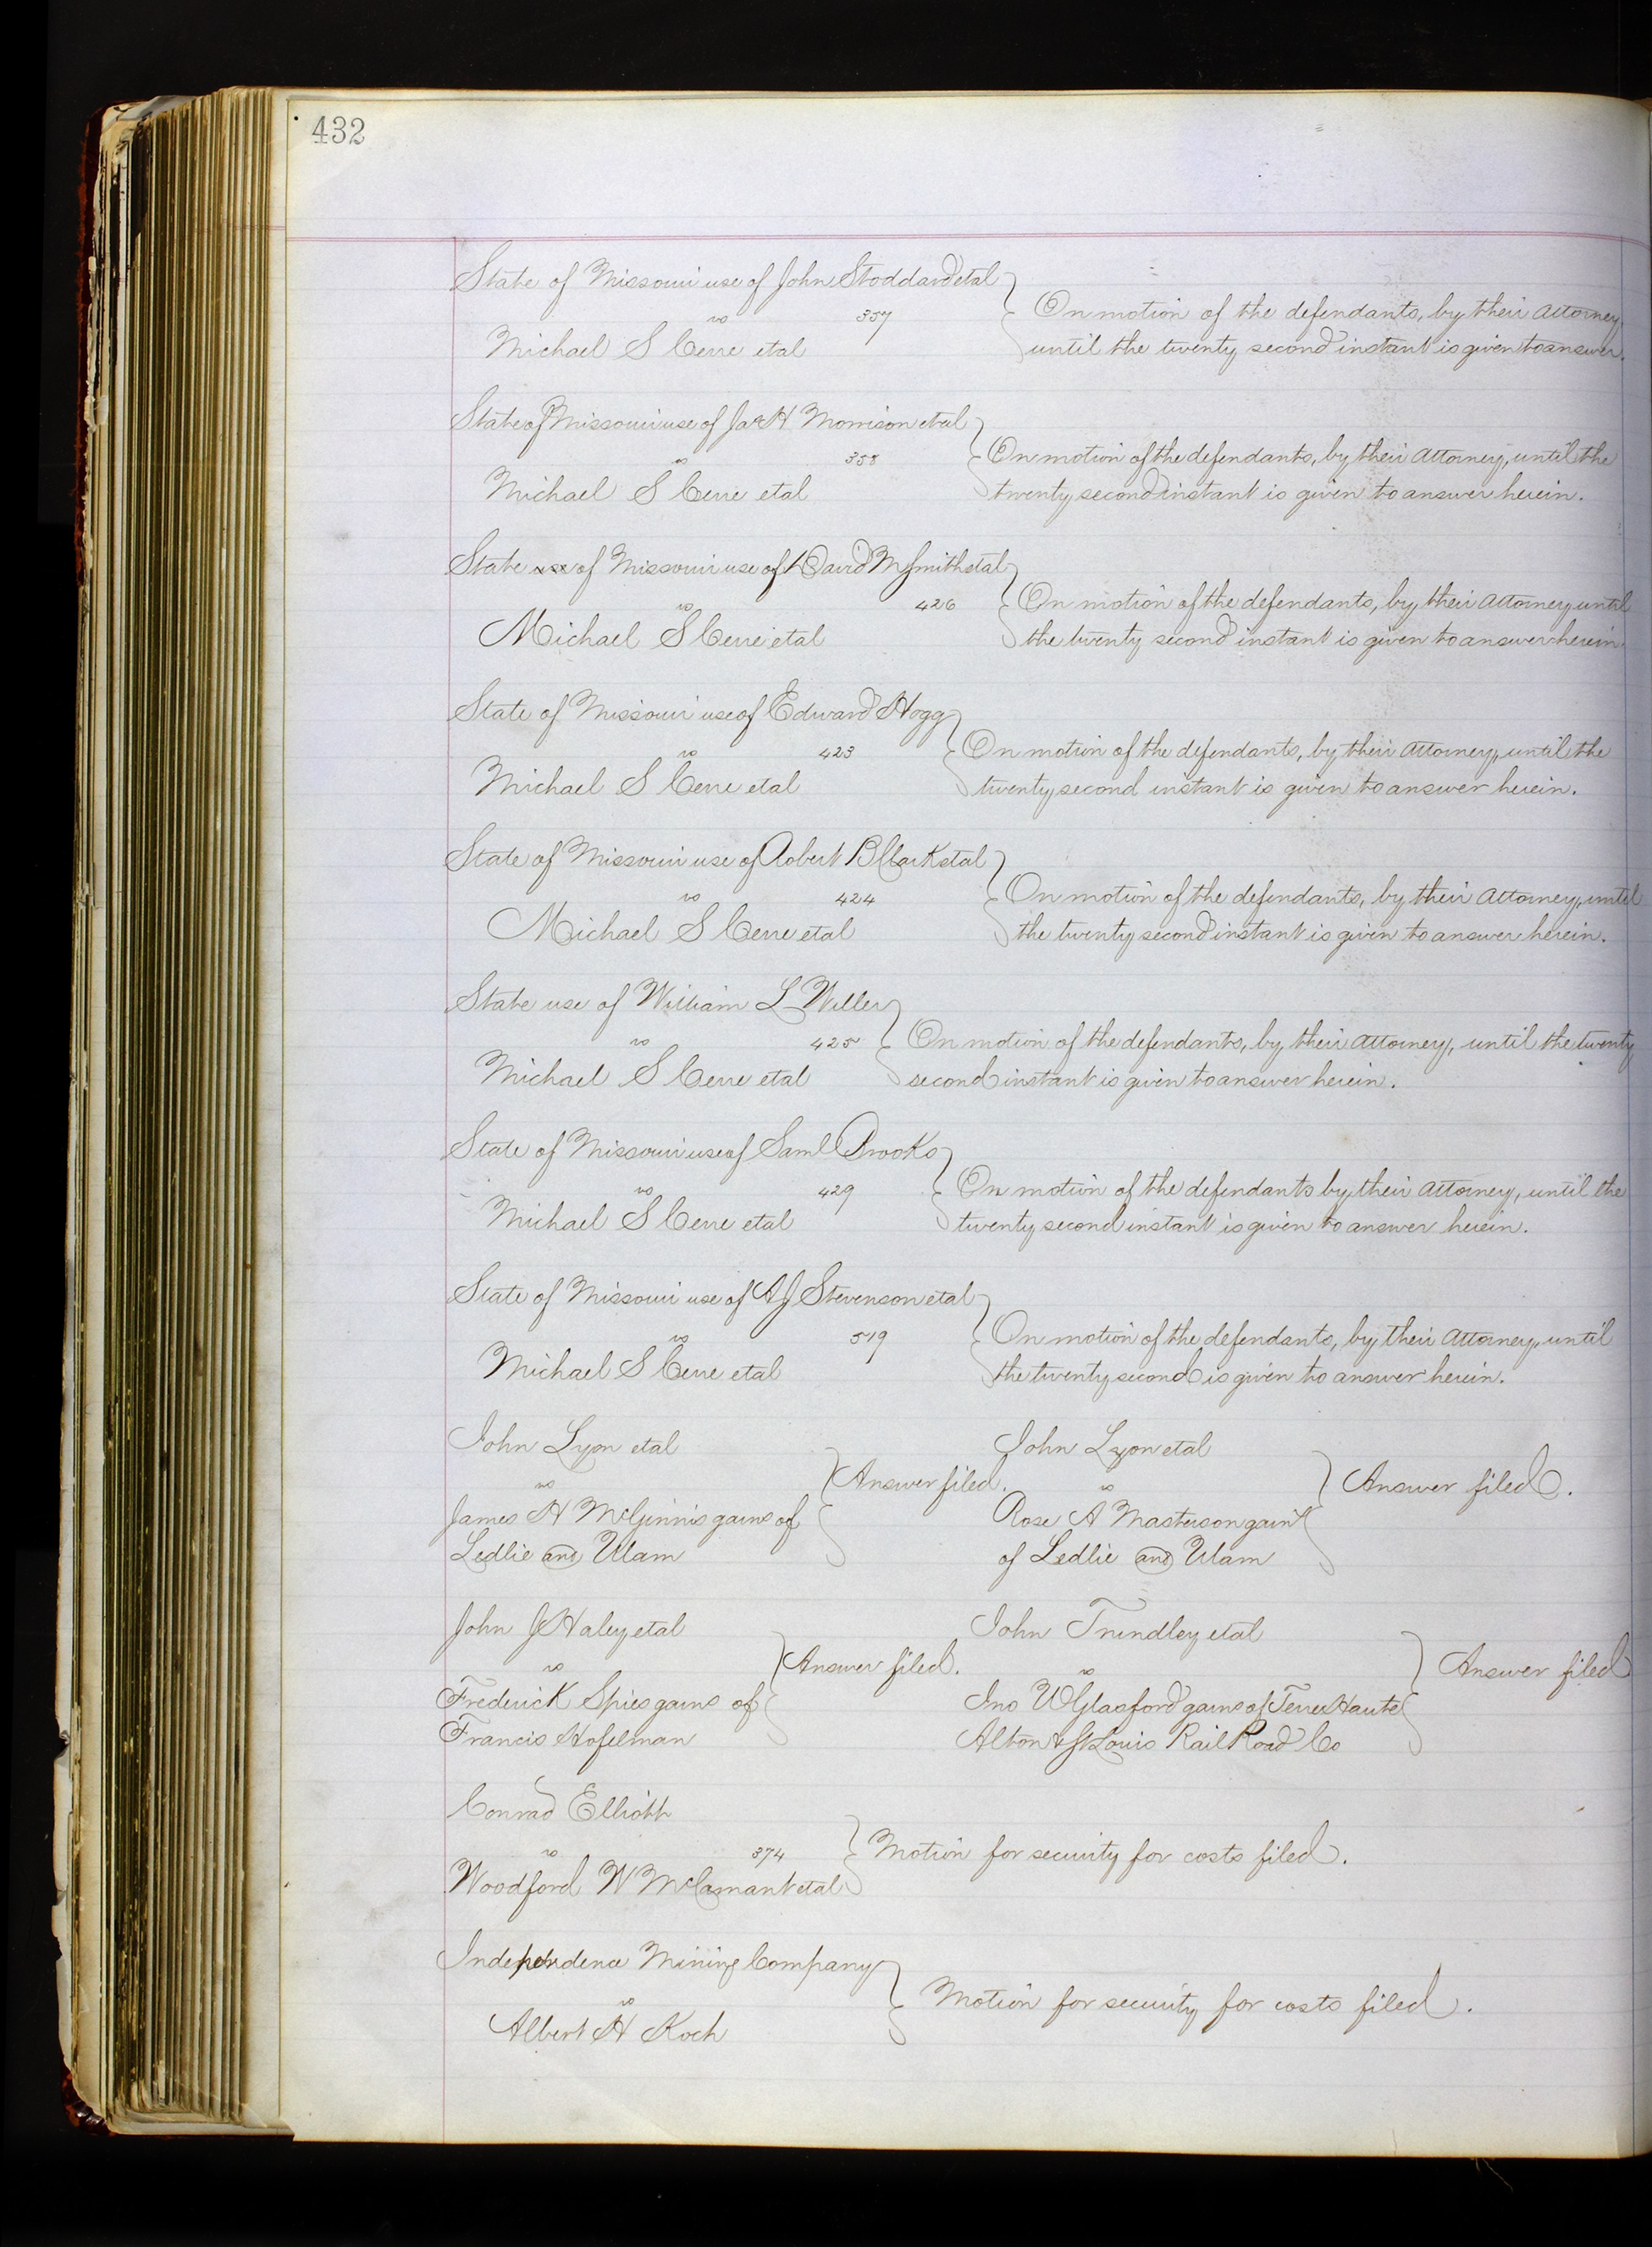 432
State of Missouri use of John Stoddard et al
vs 357
Michael S Cerre et al
On motion of the defendants, by their Attorney,
until the twenty second instant is given to answer.
State of Missouri use of Jas H Morrison et al
vs 358
Michael S Cerre et al
On motion of the defendants, by their Attorney, until the
twenty second instant is given to answer herein.
State use of Missouri use of David M Smith et al
vs 426
Michael S Cerre et al
On motion of the defendants, by their Attorney until
the twenty second instant is given to answer herein
State of Missouri use of Edward Hogg
vs 423
Michael S Cerre et al
On motion of the defendants, by their Attorney, until the
twenty second instant is given to answer herein.
State of Missouri use of Robert B Clark et al
vs 424
Michael S Cerre et al
On motion of the defendants, by their Attorney, until
the twenty second instant is given to answer herein.
State use of William L Willer
vs 425
Michael S Cerre et al
On motion of the defendants, by their Attorney, until the twenty
second instant is given to answer herein.
State of Missouri use of Saml Brooks
vs 429
Michael S Cerre et al
On motion of the defendants by their Attorney, until the
twenty second instant is given to answer herein.
State of Missouri use of AJ Stevenson et al
vs 519
Michael S Cerre et al
On motion of the defendants, by their Attorney, until
the twenty second is given to answer herein.
John Lyon et al
vs
James H McGinnis garns of
Ledlie and Ulam
Answer filed.
John Lyon et al
vs
Rose A Masterson garnt
of Ledlie and Ulam
Answer filed.
John J Haley et al
vs
Frederick Spies garns of
Francis Hofelman
Answer filed.
John Trindley et al
vs
Jno W Glasford garns of Terre Haute
Alton & St Louis Rail Road Co
Answer filed
Conrad Elliott
vs 374
Woodford W McCamant et al
Motion for security for costs filed.
Independence Mining Company
vs
Albert H Koch
Motion for security for costs filed.